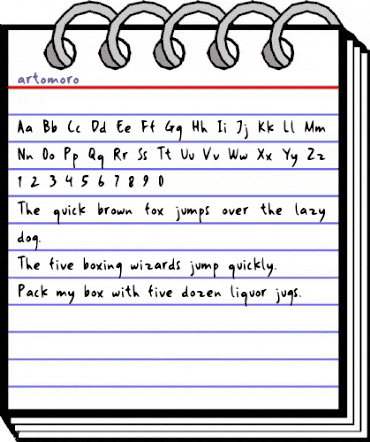 artomoro
Aa Bb Cc Dd Ee Ff Gg Hh Ii Jj Kk Ll Mm
Nn Oo Pp Qq Rr Ss Tt Uu Vv Ww Xx Yy Zz
1 2 3 4 5 6 7 8 9 0
The quick brown fox jumps over the lazy
dog.
The five boxing wizards jump quickly.
Pack my box with five dozen liquor jugs.